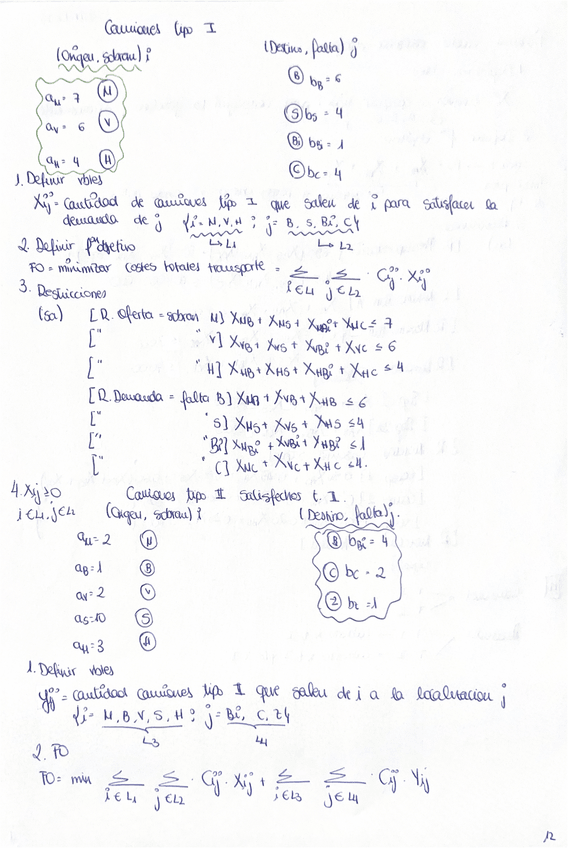 Camiones tipo I
(Origen, sobran) i
(Destino, falta) j
a_M = 7 (M)
a_V = 6 (V)
a_H = 4 (H)
(B) b_B = 6
(S) b_S = 4
(Bi) b_Bi = 1
(C) b_C = 4
1. Definir vbles
Xij = cantidad de camiones tipo I que salen de i para satisfacer la
demanda de j {i = M, V, H ; j = B, S, Bi, C}
↳ L1 ↳ L2
2. Definir fº objetivo
FO = minimizar costes totales transporte = Σ i∈L1 Σ j∈L2 · Cij · Xij
3. Restricciones
(sa) [R. Oferta = sobran M] XMB + XMS + XMBi + XMC ≤ 7
[" " V] XVB + XVS + XVBi + XVC ≤ 6
[" " H] XHB + XHS + XHBi + XHC ≤ 4
[R. Demanda = falta B] XMB + XVB + XHB ≤ 6
[" " S] XMS + XVS + XHS ≤ 4
[" " Bi] XMBi + XVBi + XHBi ≤ 1
[" " C] XMC + XVC + XHC ≤ 4.
4. Xij ≥ 0
i∈L1, j∈L2
Camiones tipo II satisfechos t. I.
(Origen, sobran) i
(Destino, falta) j.
a_M = 2 (M)
a_B = 1 (B)
a_V = 2 (V)
a_S = 10 (S)
a_H = 3 (H)
(B) b_Bi = 4
(C) b_C = 2
(Z) b_Z = 1
1. Definir vbles
Yij = cantidad camiones tipo II que salen de i a la localización j
{i = M, B, V, S, H ; j = Bi, C, Z}
L3 L4
2. FO
FO = min Σ i∈L1 Σ j∈L2 · Cij · Xij + Σ i∈L3 Σ j∈L4 · Cij · Yij
12